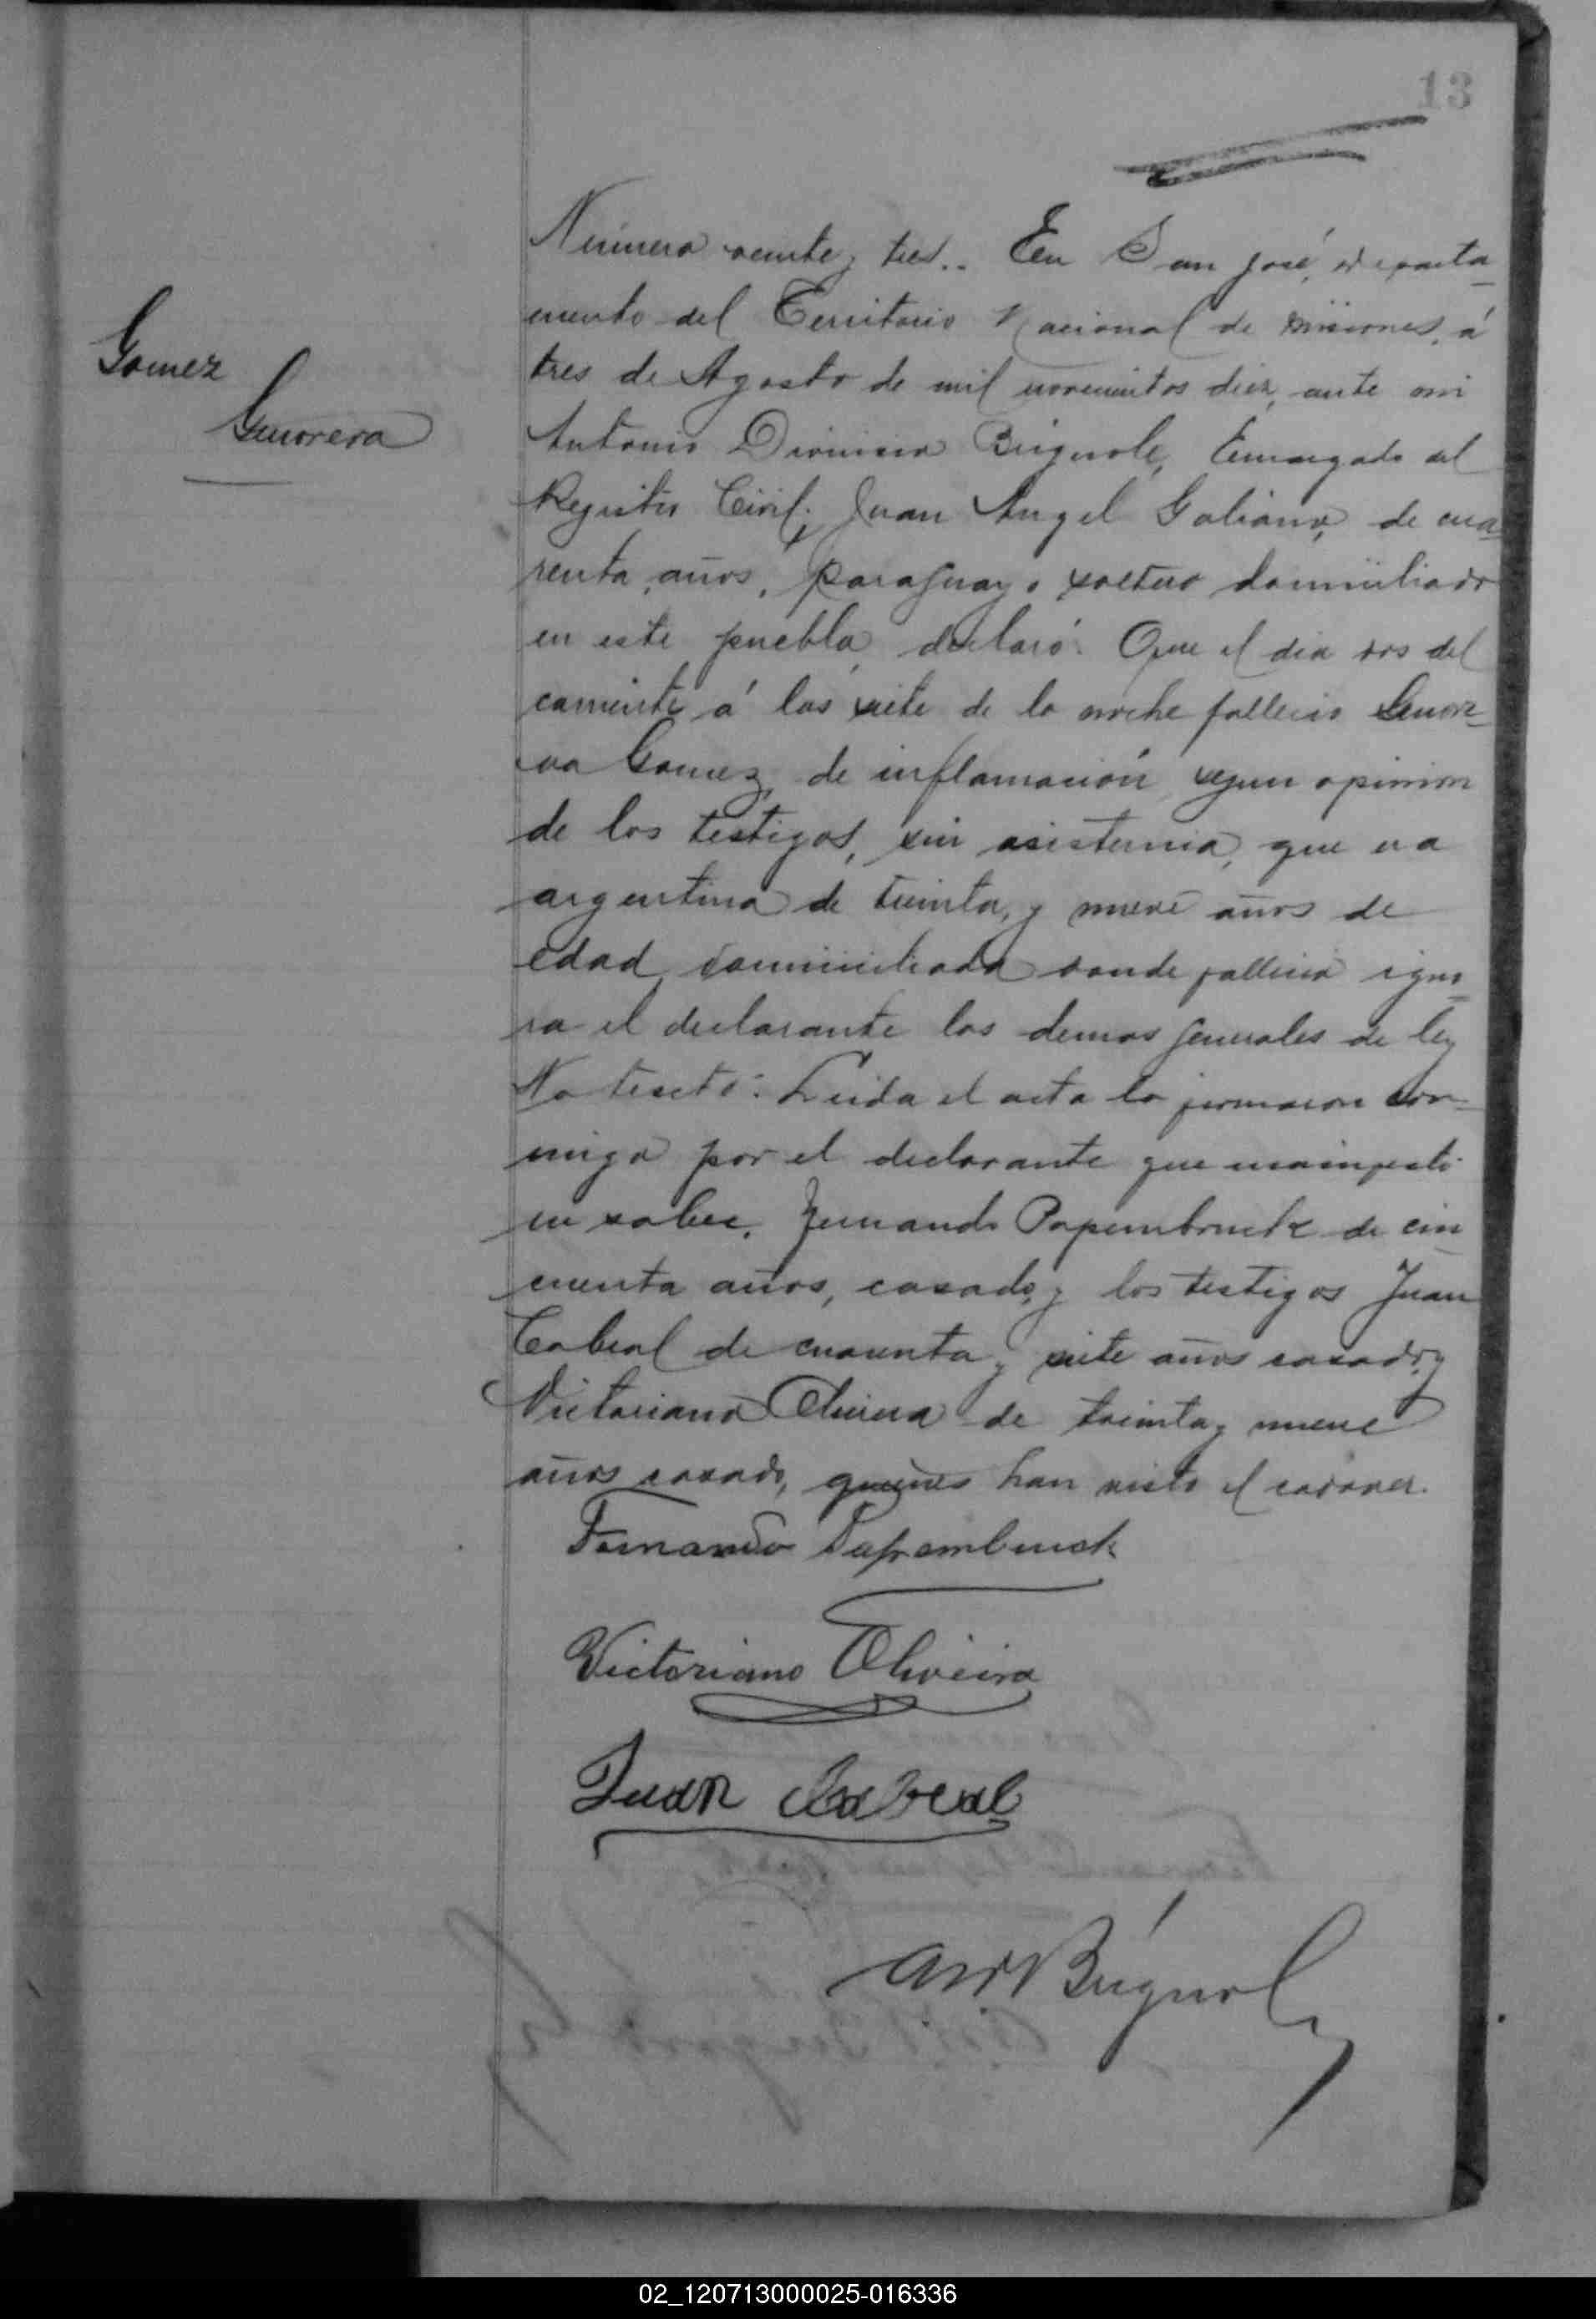 13
Gomez
Genoveva
Número veinte y tres.. En San José, departa-
mento del Territorio Nacional de Misiones, á
tres de Agosto de mil novecientos diez, ante mi
Antonio Dionisio Brignole, Encargado del
Registro Civil, Juan Angel Galiano, de cua-
renta, años, paraguayo soltero domiciliado
en este pueblo, declaró: Que el dia dos del
corriente á las siete de la noche fallecio Genove-
va Gomez, de inflamación, segun opinion
de los testigos, sin asistencia, que era
argentina de treinta, y nueve años de
edad, domiciliada donde fallecio igno-
ra el declarante las demas generales de ley
No testó: Leida el acta la firmaron con-
migo por el declarante que manifestó
no saber, Fernando Papembruck de cin-
cuenta años, casado, y los testigos Juan
Cabral de cuarenta y siete años casado, y
Victoriano Olivera de treinta y nueve
años casado, quienes han visto el cadaver.
Fernando Papembruck
Victoriano Oliveira
Juan Cabral
Brignole
02_120713000025-016336